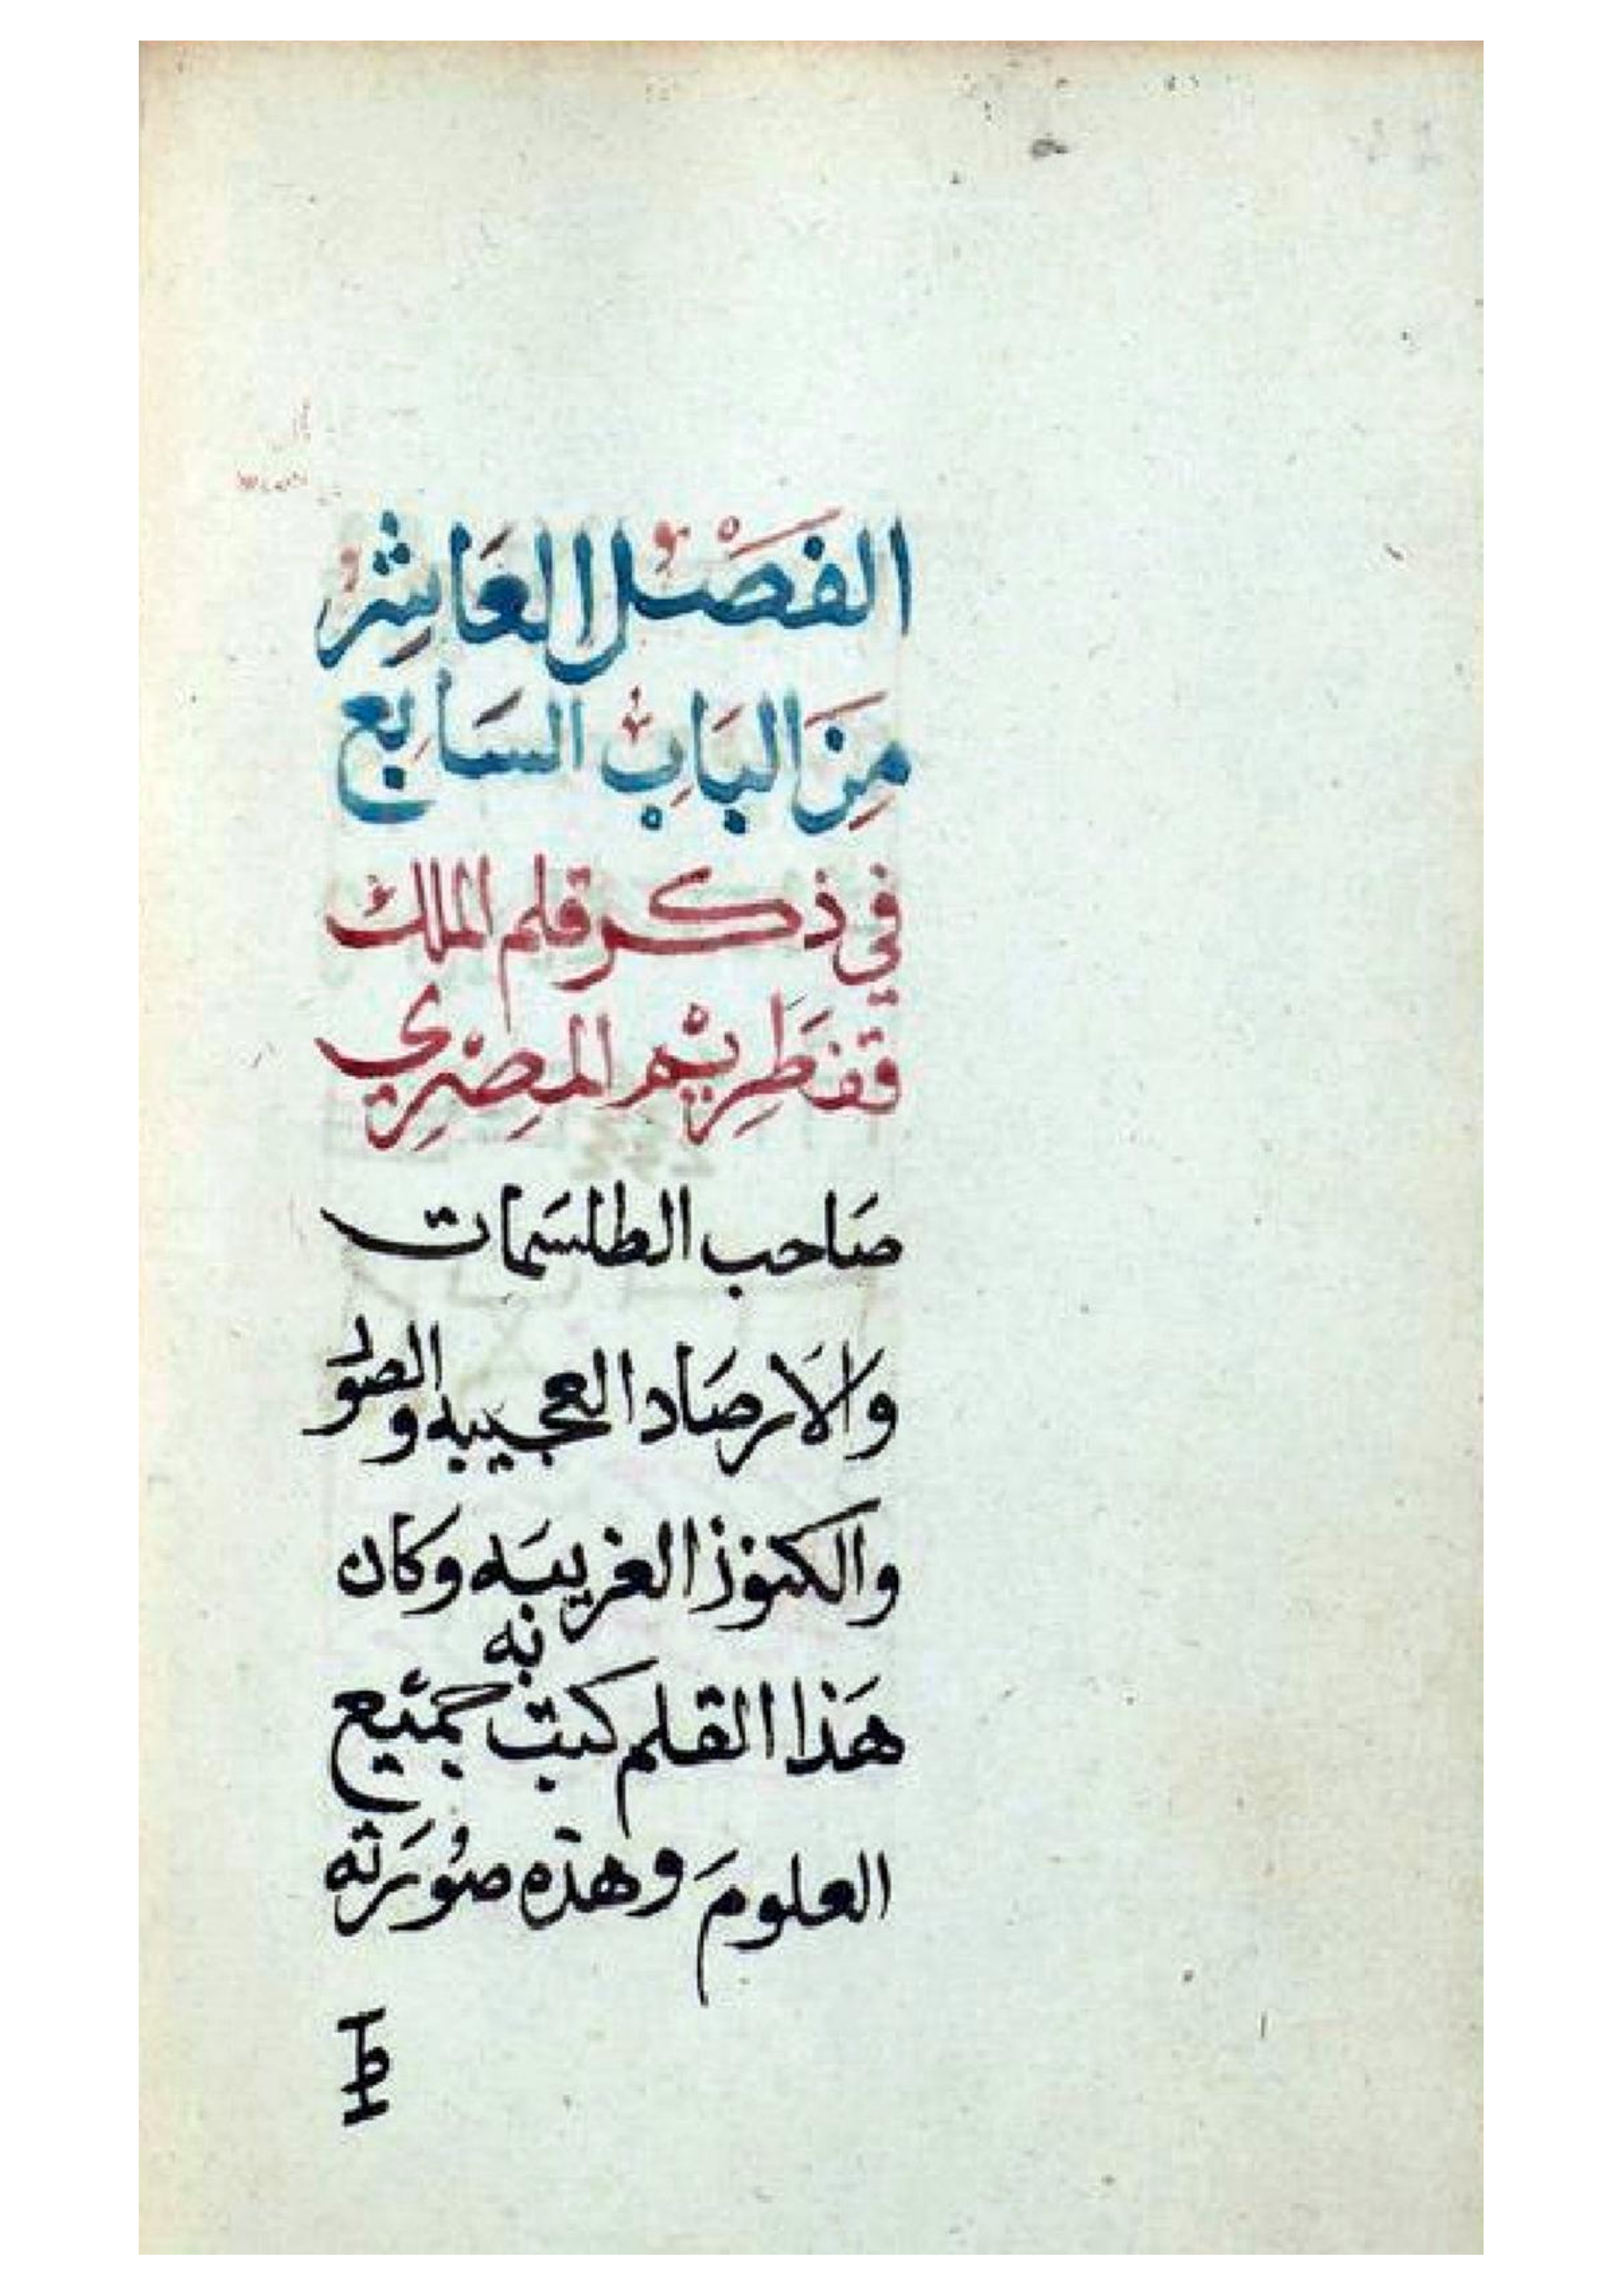 الفَصْلُ العَاشِرُ
مِنَ البَابِ السَابِع
في ذكر قلم الملك
قفطَرِيْم المصْرِي
صَاحب الطلسَمات
وَالاَرصَاد العجيبه والصور
والكنوز الغريبَه وكان
به
هَذا القلم كتبت جميع
العلومَ وهذه صُورَته